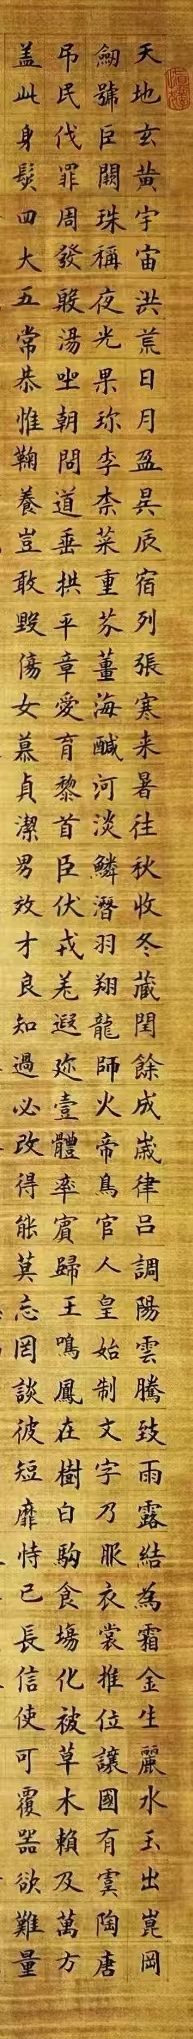 天地玄黃宇宙洪荒日月盈昃辰宿列張寒来暑往秋收冬藏閏餘成嵗律呂調陽雲騰致雨露結為霜金生麗水玉出崑岡
劔號巨闕珠稱夜光果珎李柰菜重芥薑海醎河淡鱗潛羽翔龍師火帝鳥官人皇始制文字乃服衣裳推位讓國有虞陶唐
吊民伐罪周發殷湯坐朝問道垂拱平章愛育黎首臣伏戎羌遐迩壹體率賓歸王鳴鳳在樹白駒食場化被草木賴及萬方
盖此身髮四大五常恭惟鞠養豈敢毀傷女慕貞潔男效才良知過必改得能莫忘罔談彼短靡恃己長信使可覆器欲難量